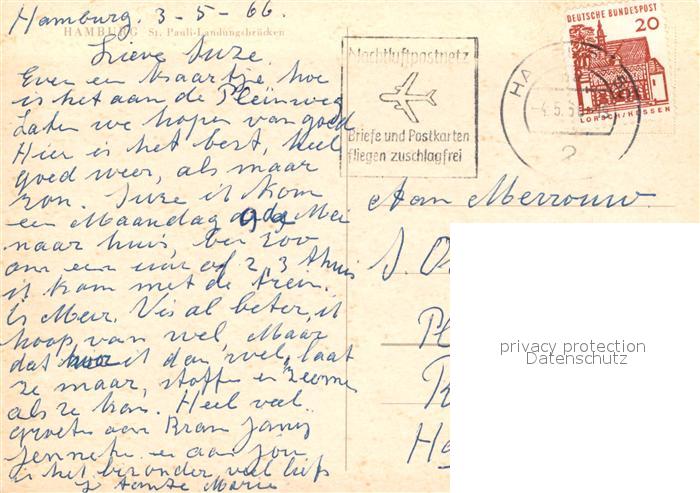 Hamburg. 3-5-66.
HAMBURG St. Pauli-Landungsbrücken
Lieve Suze.
Even een kaartje hoe
is het aan de Pleinweg
Laten we hopen van goed
Hier is het best, heel
goed weer, als maar
zon. Suze ik kom
een Maandag 9 Mei
naar huis, ben zoo
om een uur of 2 3 thuis
ik kom met de trein.
Is Meur. Vis al beter, ik
hoop van wel, Maar
dat ik dan wel, laat
ze maar, stoffe en zeeme
als ze kan. Heel veel
groeten aan Bram Jans
Jenneke en aan jou
in het bizonder veel liefs
Tante Marie
Nachtluftpostnetz
Briefe und Postkarten
fliegen zuschlagfrei
HA
-4.5.6
2
DEUTSCHE BUNDESPOST
20
LORSCH/HESSEN
Aan Merrouw
J. O
Pl
R
Ha
privacy protection
Datenschutz